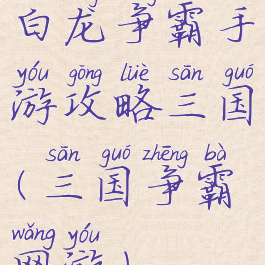 白龙争霸手
yóu gōng lüè sān guó
游攻略三国
sān guó zhēng bà
(三国争霸
wǎng yóu
网游)